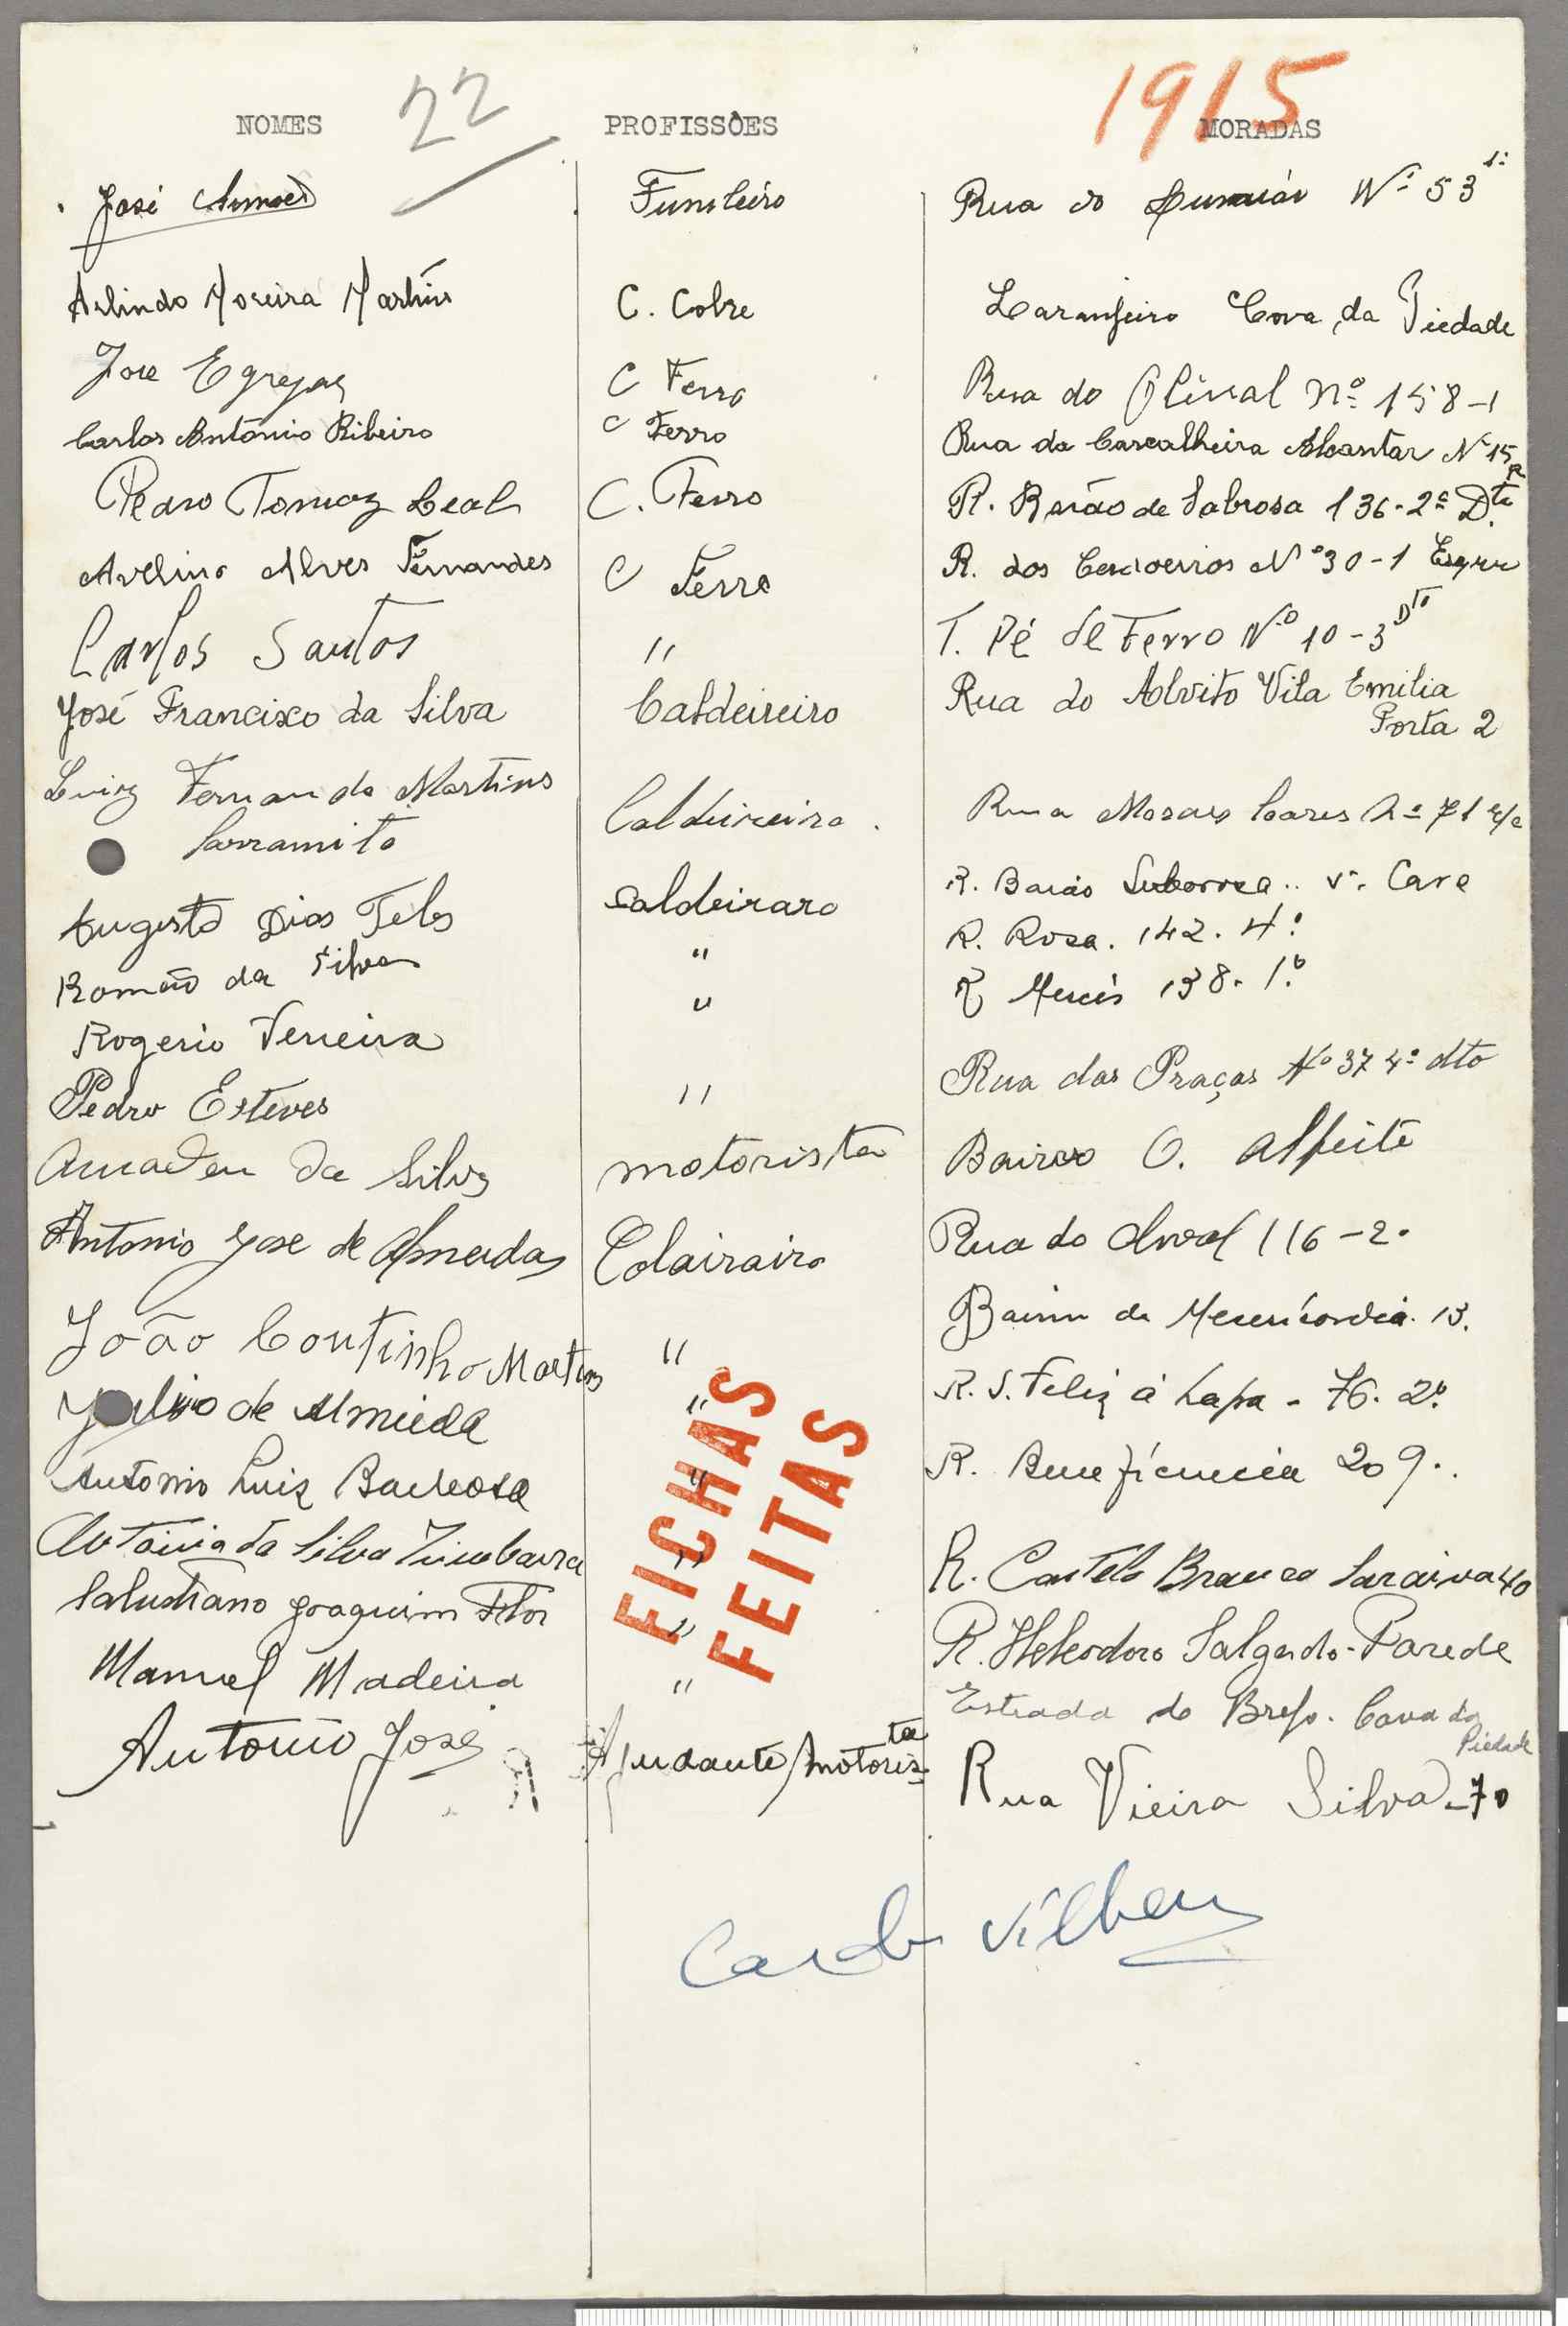 22
1915
NOMES PROFISSÕES MORADAS
José Funileiro Rua do Nº 53 1º
Arlindo Moreira Martins C. Cobre Laranjeiro Cova da Piedade
Jose Egrejas C Ferro Rua do Olival nº 158-1
Carlos António Ribeiro C Ferro Rua da Cascalheira Alcantar Nº 15 R
Pedro Tomaz Leal C. Ferro R. Barão de Sabrosa 136-2º Dto
Avelino Alves Fernandes C Ferro R. dos Nº 30-1
Carlos Santos " T. Pé de Ferro Nº 10-3 DTO
José Francisco da Silva Caldeireiro Rua do Alvito Vila Emilia
Porta 2
Luiz Fernando Martins Caldeireiro. Rua Morais Soares nº 71 r/c
Sarramito
Augusto Dias Teles Caldeiraro R. Barão Cave
Romão da Silva " R. Rosa. 142. 4º
Rogerio Ferreira " R Mercês 138. 1º
Pedro Esteves " Rua das Praças Nº 37 4º dto
Amadeu da Silva motorista Bairro O. Alfeite
Antonio Jose de Almeida Colairairo Rua do Olival 116-2.
João Coutinho Martins " Bairro da Misericordia 13.
Julio de Almeida " R. S. Feliz á Lapa - 76. 2º
Antonio Luiz Barbosa " R. Beneficencia 209.
António da Silva " R. Castelo Branco Saraiva 40
Salustiano Joaquim Flor " R. Heleodoro Salgado-Parede
Manuel Madeira " Estrada do Brejo. Cova da Piedade
António José Ajudante/motorista Rua Vieira Silva-70
FICHAS
FEITAS
Vilhena